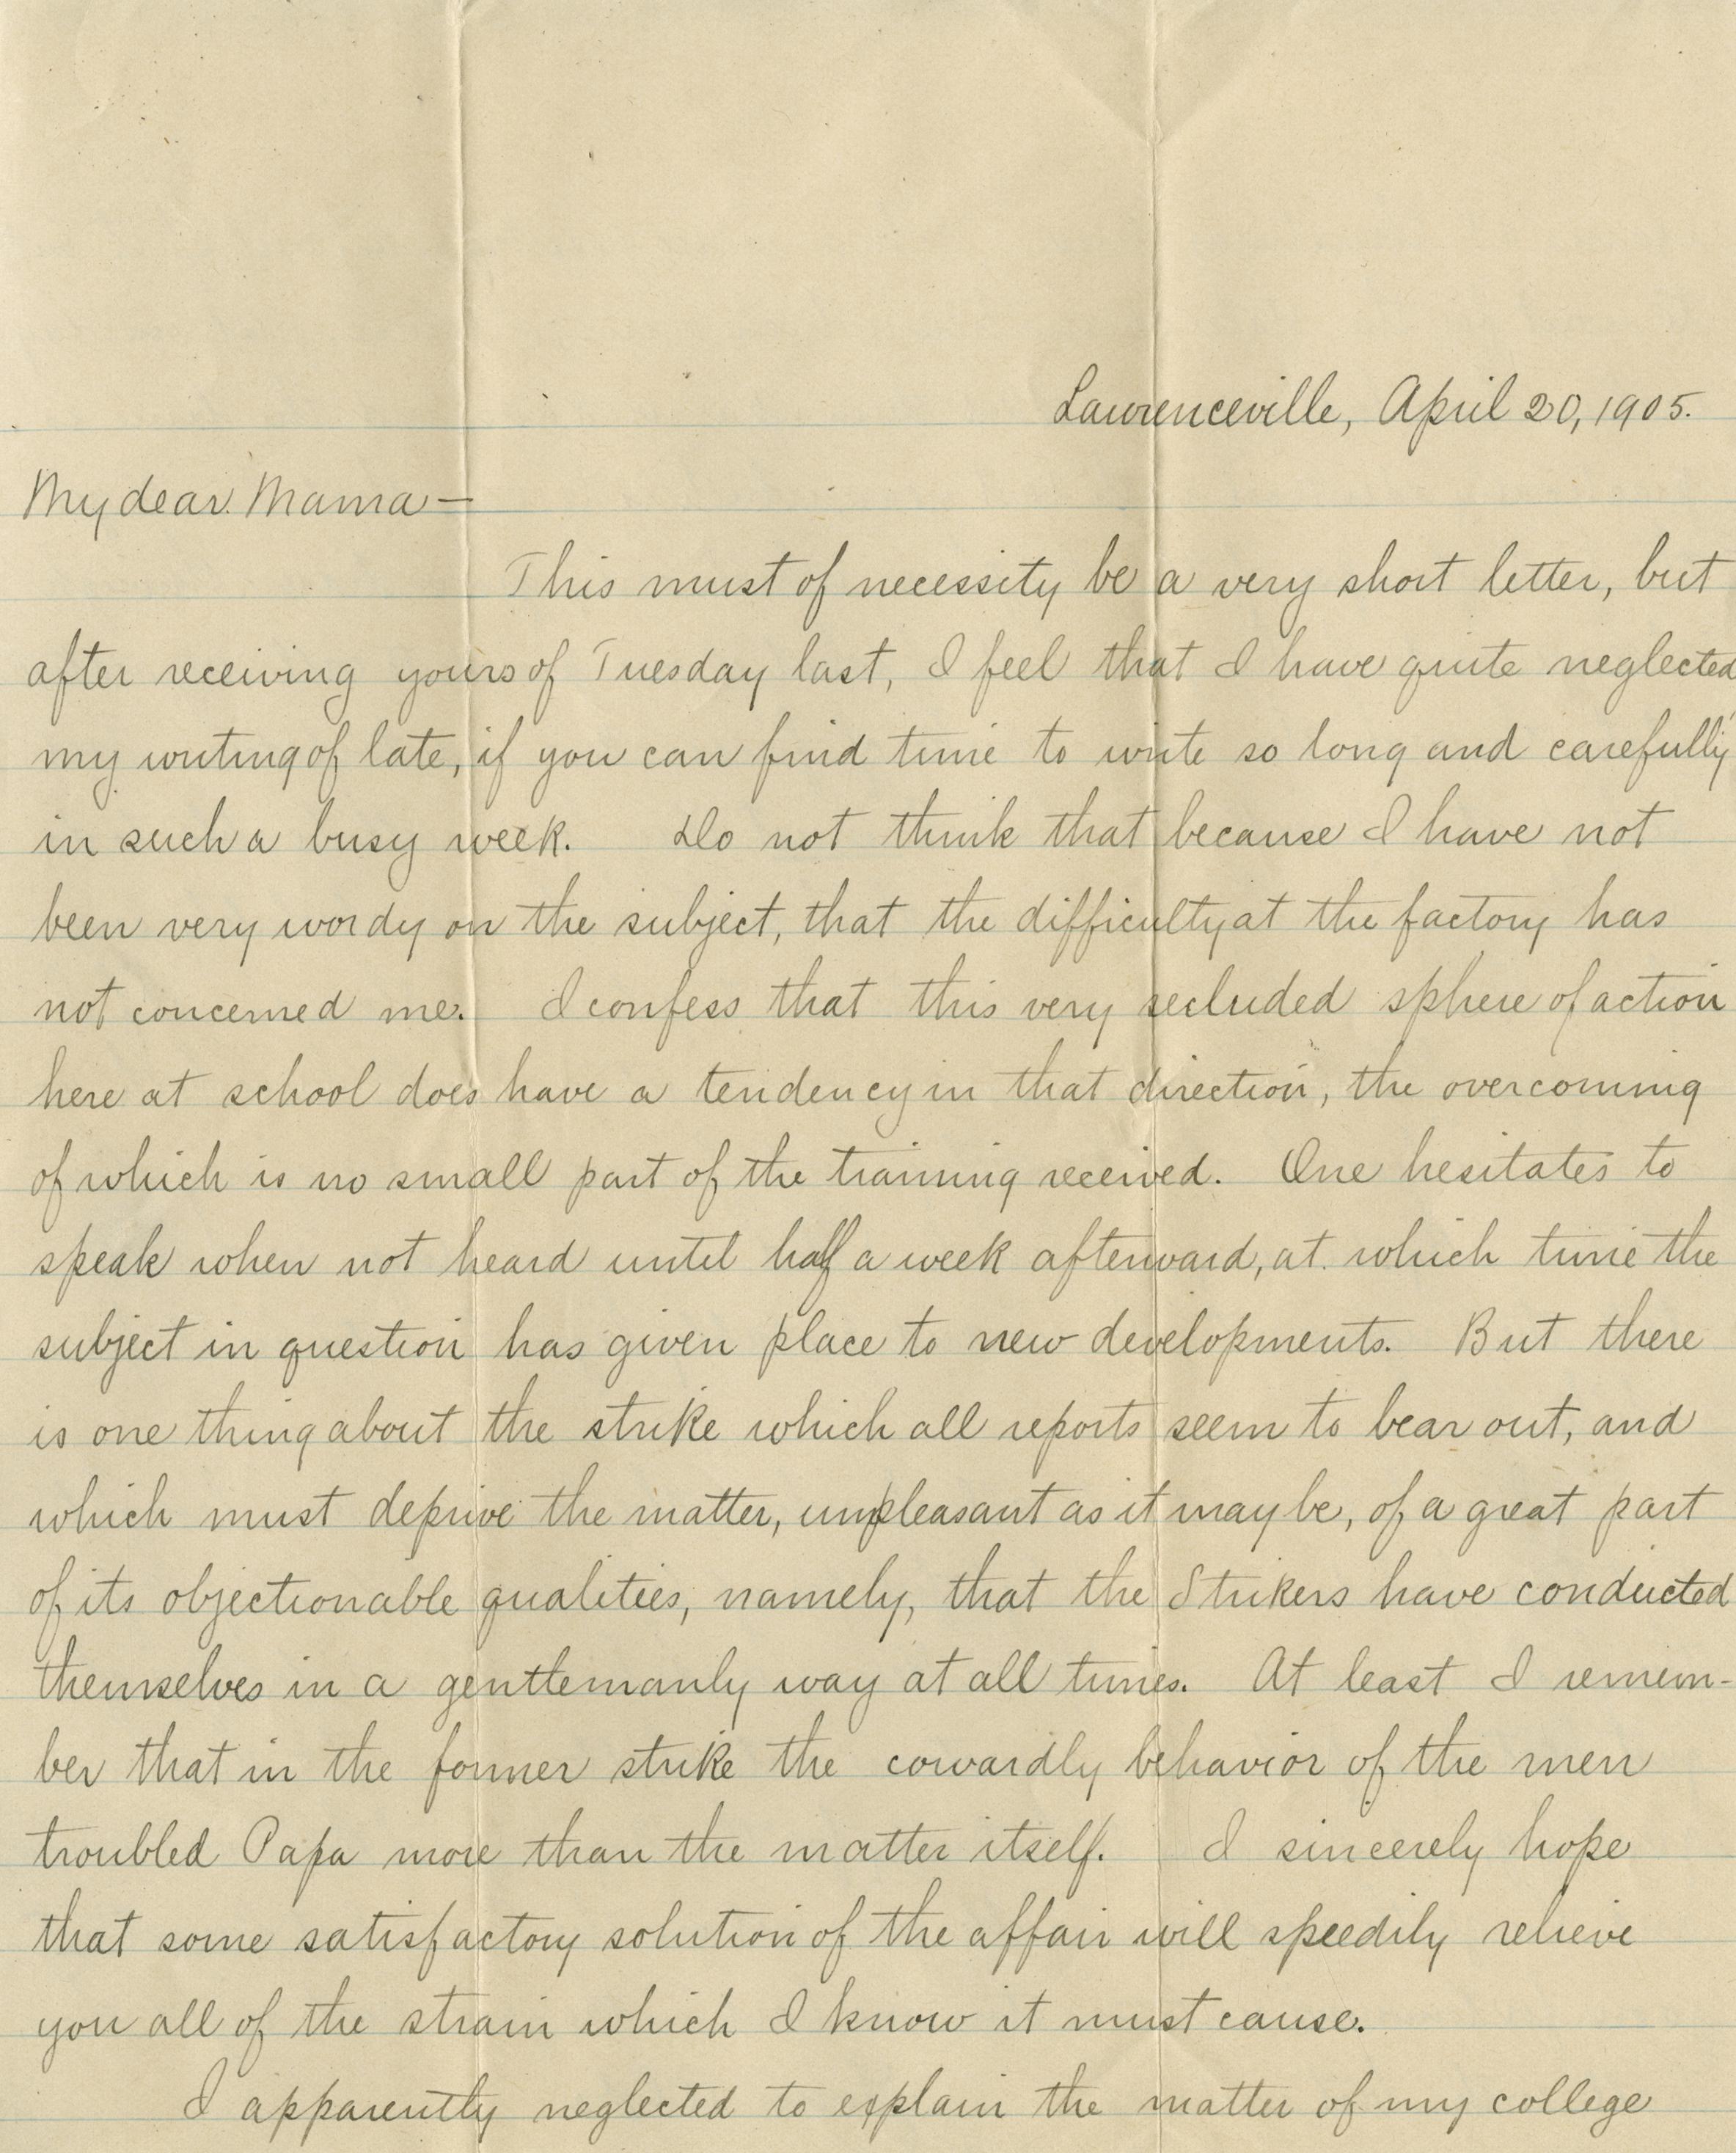 Lawrenceville, April 20, 1905.
My dear Mama —
This must of necessity be a very short letter, but
after receiving yours of Tuesday last, I feel that I have quite neglected
my writing of late, if you can find time to write so long and carefully
in such a busy week. Do not think that because I have not
been very wordy on the subject, that the difficulty at the factory has
not concerned me. I confess that this very secluded sphere of action
here at school does have a tendency in that direction, the overcoming
of which is no small part of the training received. One hesitates to
speak when not heard until half a week afterward, at which time the
subject in question has given place to new developments. But there
is one thing about the strike which all reports seem to bear out, and
which must deprive the matter, unpleasant as it may be, of a great part
of its objectionable qualities, namely, that the Strikers have conducted
themselves in a gentlemanly way at all times. At least I remem-
ber that in the former strike the cowardly behavior of the men
troubled Papa more than the matter itself. I sincerely hope
that some satisfactory solution of the affair will speedily relieve
you all of the strain which I know it must cause.
I apparently neglected to explain the matter of my college